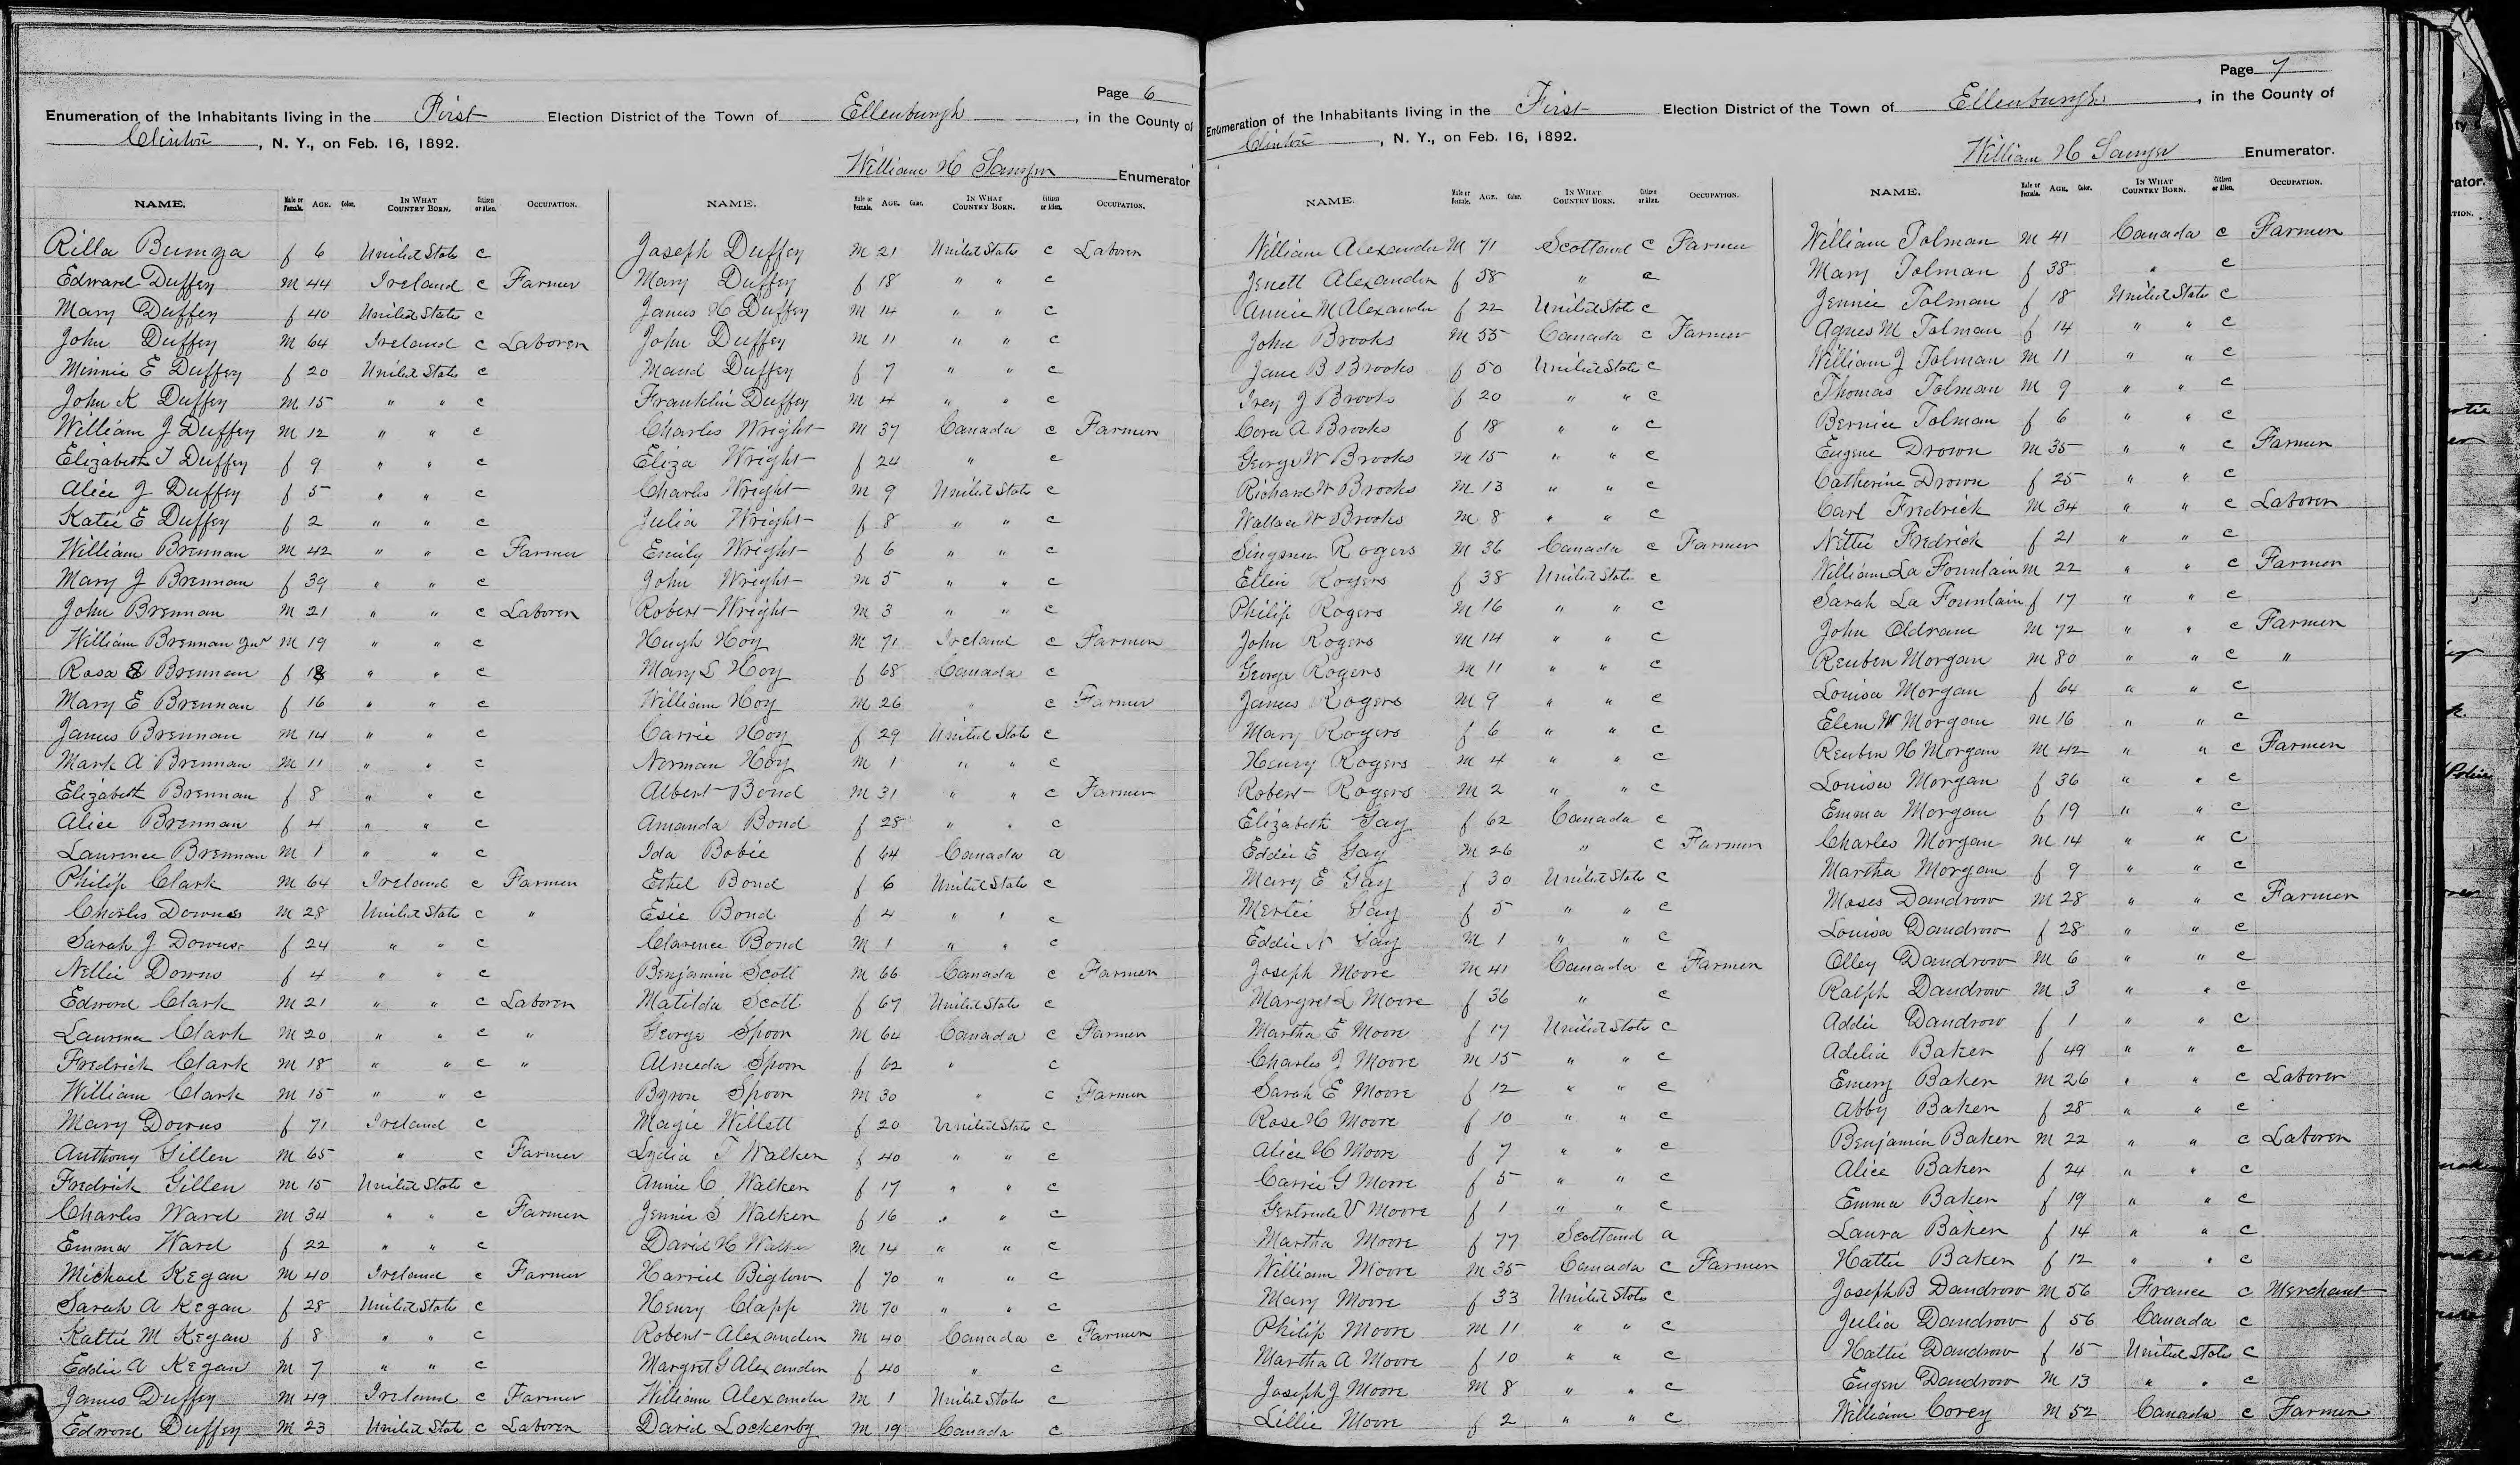 Page 6
Enumeration of the Inhabitants living in the First Election District of the Town of Ellenburgh, in the County of
Clinton, N. Y., on Feb. 16, 1892.
William H Sawyer Enumerator
NAME. Male or Female. AGE. Color. IN WHAT COUNTRY BORN. Citizen or Alien. OCCUPATION.
Rilla f 6 United State c
Edward Duffey M 44 Ireland c Farmer
Mary Duffey f 40 United State c
John Duffey M 64 Ireland c Laborer
Minnie E Duffey f 20 United State c
John K Duffey M 15 " " c
William J Duffey M 12 " " c
Elizabeth T Duffey f 9 " " c
Alice J Duffey f 5 " " c
Katie E Duffey f 2 " " c
William Brennan M 42 " " c Farmer
Mary J Brennan f 39 " " c
John Brennan M 21 " " c Laborer
William Brennan Jnr M 19 " " c
Rosa E Brennan f 18 " " c
Mary E Brennan f 16 " " c
James Brennan M 14 " " c
Mark A Brennan M 11 " " c
Elizabeth Brennan f 8 " " c
Alice Brennan f 4 " " c
Laurence Brennan M 1 " " c
Philip Clark M 64 Ireland c Farmer
Charles Downs M 28 United State c "
Sarah J Downs f 24 " " c
Nellie Downs f 4 " " c
Edword Clark M 21 " " c Laborer
Laurence Clark M 20 " " c "
Fredrick Clark M 18 " " c "
William Clark M 15 " " c
Mary Downs f 71 Ireland c
Anthony Gillen M 65 " c Farmer
Fredrick Gillen M 15 United State c
Charles Ward M 34 " " c Farmer
Emma Ward f 22 " " c
Michael Kegan M 40 Ireland c Farmer
Sarah A Kegan f 28 United State c
Kattie M Kegan f 8 " " c
Eddie A Kegan M 7 " " c
James Duffey M 49 Ireland c Farmer
Edword Duffey M 23 United State c Laborer
NAME. Male or Female. AGE. Color. IN WHAT COUNTRY BORN. Citizen or Alien. OCCUPATION.
Joseph Duffey M 21 United State c Laborer
Mary Duffey f 18 " " c
James H Duffey M 14 " " c
John Duffey M 11 " " c
Maud Duffey f 7 " " c
Franklin Duffey M 4 " " c
Charles Wright M 37 Canada c Farmer
Eliza Wright f 24 " c
Charles Wright M 9 United State c
Julia Wright f 8 " " c
Emily Wright f 6 " " c
John Wright M 5 " " c
Robert Wright M 3 " " c
Hugh Hoy M 71 Ireland c Farmer
Mary L Hoy f 68 Canada c
William Hoy M 26 " c Farmer
Carrie Hoy f 29 United State c
Norman Hoy M 1 " " c
Albert Bond M 31 " " c Farmer
Amanda Bond f 28 " " c
Ida Bobie f 64 Canada a
Ethel Bond f 6 United State c
Esie Bond f 4 " " c
Clarence Bond M 1 " " c
Benjamin Scott M 66 Canada c Farmer
Matilda Scott f 67 United State c
George Spoon M 64 Canada c Farmer
Almeda Spoon f 62 " c
Byron Spoon M 30 " c Farmer
Magie Willett f 20 United State c
Lydia T Walker f 40 " " c
Annie C Walker f 17 " " c
Jennie S Walker f 16 " " c
David H Walker M 14 " " c
Harriet Biglow f 70 " " c
Henry Clapp M 70 " " c
Robert Alexander M 40 Canada c Farmer
Margret G Alexander f 40 " c
William Alexander M 1 United State c
David Lockerby M 19 Canada c
Page 7
Enumeration of the Inhabitants living in the First Election District of the Town of Ellenburgh, in the County of
Clinton, N. Y., on Feb. 16, 1892.
William H Sawyer Enumerator.
NAME. Male or Female. AGE. Color. IN WHAT COUNTRY BORN. Citizen or Alien. OCCUPATION.
William Alexander M 71 Scotland c Farmer
Jenett Alexander f 58 " c
Annie M Alexander f 22 United State c
John Brooks M 55 Canada c Farmer
Jane B Brooks f 50 United State c
Irey J Brooks f 20 " " c
Cora A Brooks f 18 " " c
George W Brooks M 15 " " c
Richard W Brooks M 13 " " c
Wallace W Brooks M 8 " " c
Rogers M 36 Canada c Farmer
Ellen Rogers f 38 United State c
Philip Rogers M 16 " " c
John Rogers M 14 " " c
George Rogers M 11 " " c
James Rogers M 9 " " c
Mary Rogers f 6 " " c
Henry Rogers M 4 " " c
Robert Rogers M 2 " " c
Elizabeth Gay f 62 Canada c
Eddie E Gay M 26 " c Farmer
Mary E Gay f 30 United State c
Mertie Gay f 5 " " c
Eddie N Gay M 1 " " c
Joseph Moore M 41 Canada c Farmer
Margret L Moore f 36 " c
Martha E Moore f 17 United State c
Charles J Moore M 15 " " c
Sarah E Moore f 12 " " c
Rose H Moore f 10 " " c
Alice H Moore f 7 " " c
Carrie G Moore f 5 " " c
Gertrude V Moore f 1 " " c
Martha Moore f 77 Scotland a
William Moore M 35 Canada c Farmer
Mary Moore f 33 United State c
Philip Moore M 11 " " c
Martha A Moore f 10 " " c
Joseph J Moore M 8 " " c
Lillie Moore f 2 " " c
NAME. Male or Female. AGE. Color. IN WHAT COUNTRY BORN. Citizen or Alien. OCCUPATION.
William Tolman M 41 Canada c Farmer
Mary Tolman f 38 " c
Jennie Tolman f 18 United State c
Agnes M Tolman f 14 " " c
William J Tolman M 11 " " c
Thomas Tolman M 9 " " c
Bernice Tolman f 6 " " c
Eugene Drown M 35 " " c Farmer
Catherine Drown f 25 " " c
Carl Fredrick M 34 " " c Laborer
Nettie Fredrick f 21 " " c
William La Fountain M 22 " " c Farmer
Sarah La Fountain f 17 " " c
John Oldram M 72 " " c Farmer
Reuben Morgan M 80 " " c "
Louisa Morgan f 64 " " c
Elem W Morgan M 16 " " c
Reuben H Morgan M 42 " " c Farmer
Louisa Morgan f 36 " " c
Emma Morgan f 19 " " c
Charles Morgan M 14 " " c
Martha Morgan f 9 " " c
Moses Dandrow M 28 " " c Farmer
Louisa Dandrow f 28 " " c
Olley Dandrow M 6 " " c
Ralph Dandrow M 3 " " c
Addie Dandrow f 1 " " c
Adelia Baker f 49 " " c
Emery Baker M 26 " " c Laborer
Abby Baker f 28 " " c
Benjamin Baker M 22 " " c Laborer
Alice Baker f 24 " " c
Emma Baker f 19 " " c
Laura Baker f 14 " " c
Hattie Baker f 12 " " c
Joseph B Dandrow M 56 France c Merchant
Julia Dandrow f 56 Canada c
Hattie Dandrow f 15 United State c
Eugen Dandrow M 13 " " c
William Corey M 52 Canada c Farmer